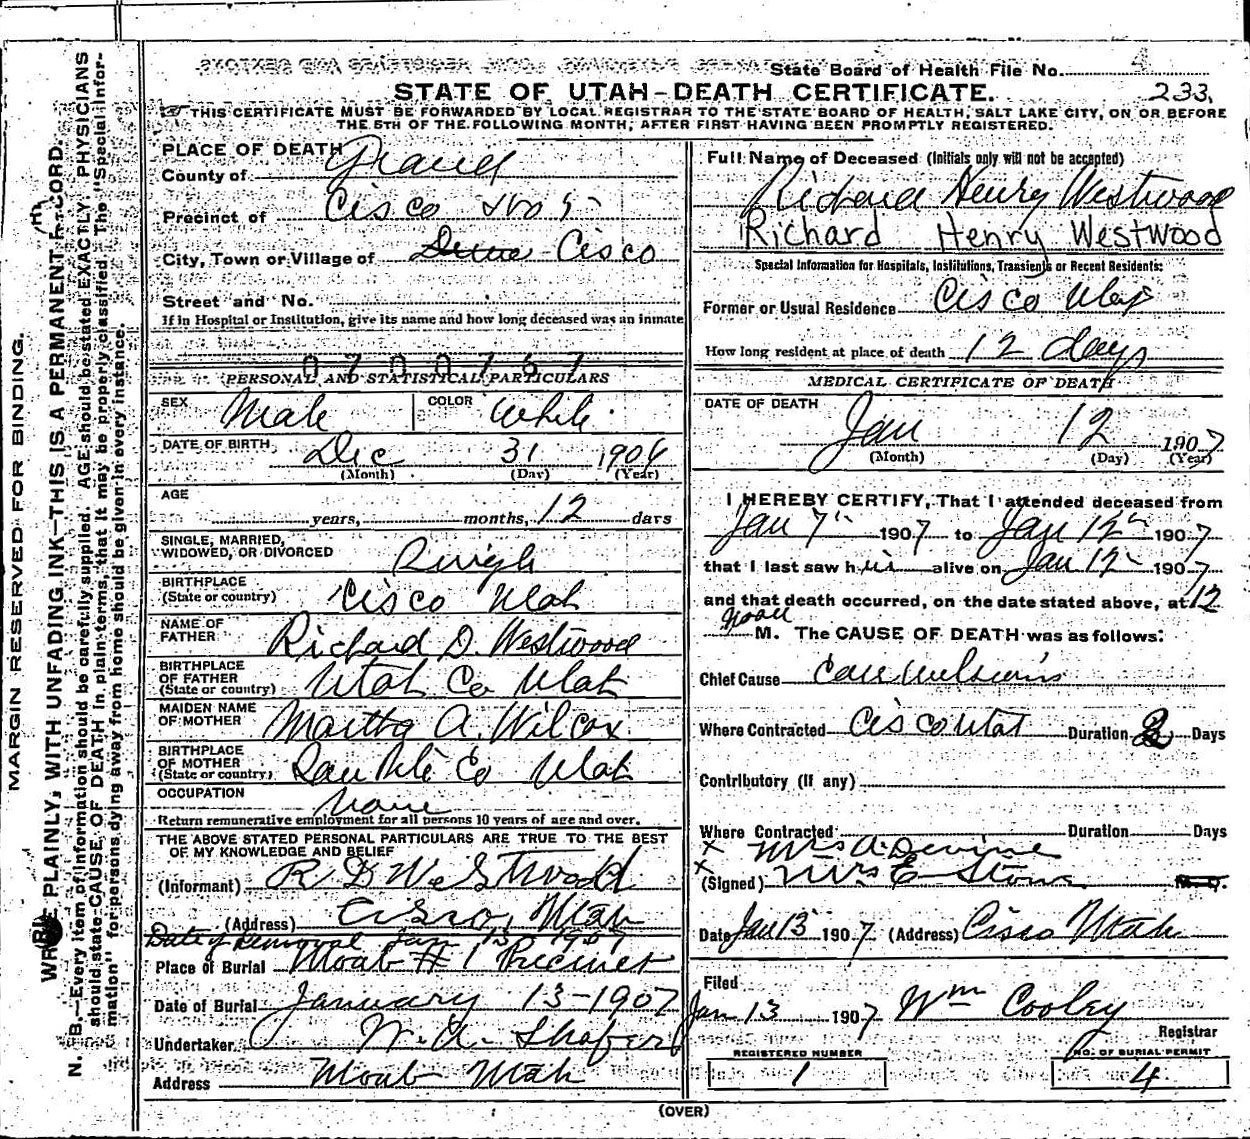 State Board of Health File No. 4
STATE OF UTAH-DEATH CERTIFICATE.
233
THIS CERTIFICATE MUST BE FORWARDED BY LOCAL REGISTRAR TO THE STATE BOARD OF HEALTH, SALT LAKE CITY, ON OR BEFORE
THE 5TH OF THE FOLLOWING MONTH, AFTER FIRST HAVING BEEN PROMPTLY REGISTERED.
MARGIN RESERVED FOR BINDING.
WRITE PLAINLY, WITH UNFADING INK—THIS IS A PERMANENT RECORD.
N. B.—Every item of information should be carefully supplied. AGE should be stated EXACTLY. PHYSICIANS
should state CAUSE OF DEATH in plain terms, that it may be properly classified. The "Special Infor-
mation" for persons dying away from home should be given in every instance.
PLACE OF DEATH
County of Grand
Precinct of Cisco No 5
City, Town or Village of Cisco
Street and No.
If in Hospital or Institution, give its name and how long deceased was an inmate
0700767
PERSONAL AND STATISTICAL PARTICULARS
SEX Male COLOR White
DATE OF BIRTH Dec 31 1906
(Month) (Day) (Year)
AGE
years, months, 12 days
SINGLE, MARRIED,
WIDOWED, OR DIVORCED Single
BIRTHPLACE
(State or country) Cisco Utah
NAME OF
FATHER Richard D. Westwood
BIRTHPLACE
OF FATHER
(State or country) Utah Co Utah
MAIDEN NAME
OF MOTHER Martha A. Wilcox
BIRTHPLACE
OF MOTHER
(State or country) San Pete Co Utah
OCCUPATION None
Return remunerative employment for all persons 10 years of age and over.
THE ABOVE STATED PERSONAL PARTICULARS ARE TRUE TO THE BEST
OF MY KNOWLEDGE AND BELIEF
(Informant) R D Westwood
(Address) Cisco, Utah
Date of Removal Jan 13 1907
Place of Burial Moab #1 Precinct
Date of Burial January 13-1907
Undertaker W. A. Shafer
Address Moab Utah
Full Name of Deceased (Initials only will not be accepted)
Richard Henry Westwood
Richard Henry Westwood
Special Information for Hospitals, Institutions, Transients or Recent Residents:
Former or Usual Residence Cisco Utah
How long resident at place of death 12 days
MEDICAL CERTIFICATE OF DEATH
DATE OF DEATH
Jan 12 1907
(Month) (Day) (Year)
I HEREBY CERTIFY, That I attended deceased from
Jan 7th 1907 to Jan 12th 1907
that I last saw him alive on Jan 12 1907
and that death occurred, on the date stated above, at 12
noon M. The CAUSE OF DEATH was as follows:
Chief Cause
Where Contracted Cisco Utah Duration 2 Days
Contributory (If any)
Where Contracted Duration Days
x Mrs A. Devine
x (Signed) Mrs E Stone M. D.
Date Jan 13 1907 (Address) Cisco Utah
Filed
Jan 13 1907 Wm Cooley
Registrar
REGISTERED NUMBER
1
NO. OF BURIAL PERMIT
4
(OVER)